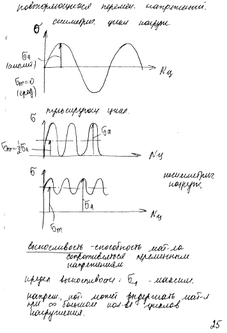 повторяющиеся перемен. напряжений.
симметрич. цикл нагруж.
σ
σa
(амплит)
σm=0
(сред)
Nц
пульсирующий цикл.
σ
σa
σm=½σa
Nц
несимметрич.
нагруж.
σ
Nц
σm
σa
выносливость - способность мат-ла
сопротивляться переменным
напряжениям
предел выносливости: σ-1 - максим.
напряж., кот. может выдержать мат-л
при ∞ большом кол-ве циклов
нагружения.
25